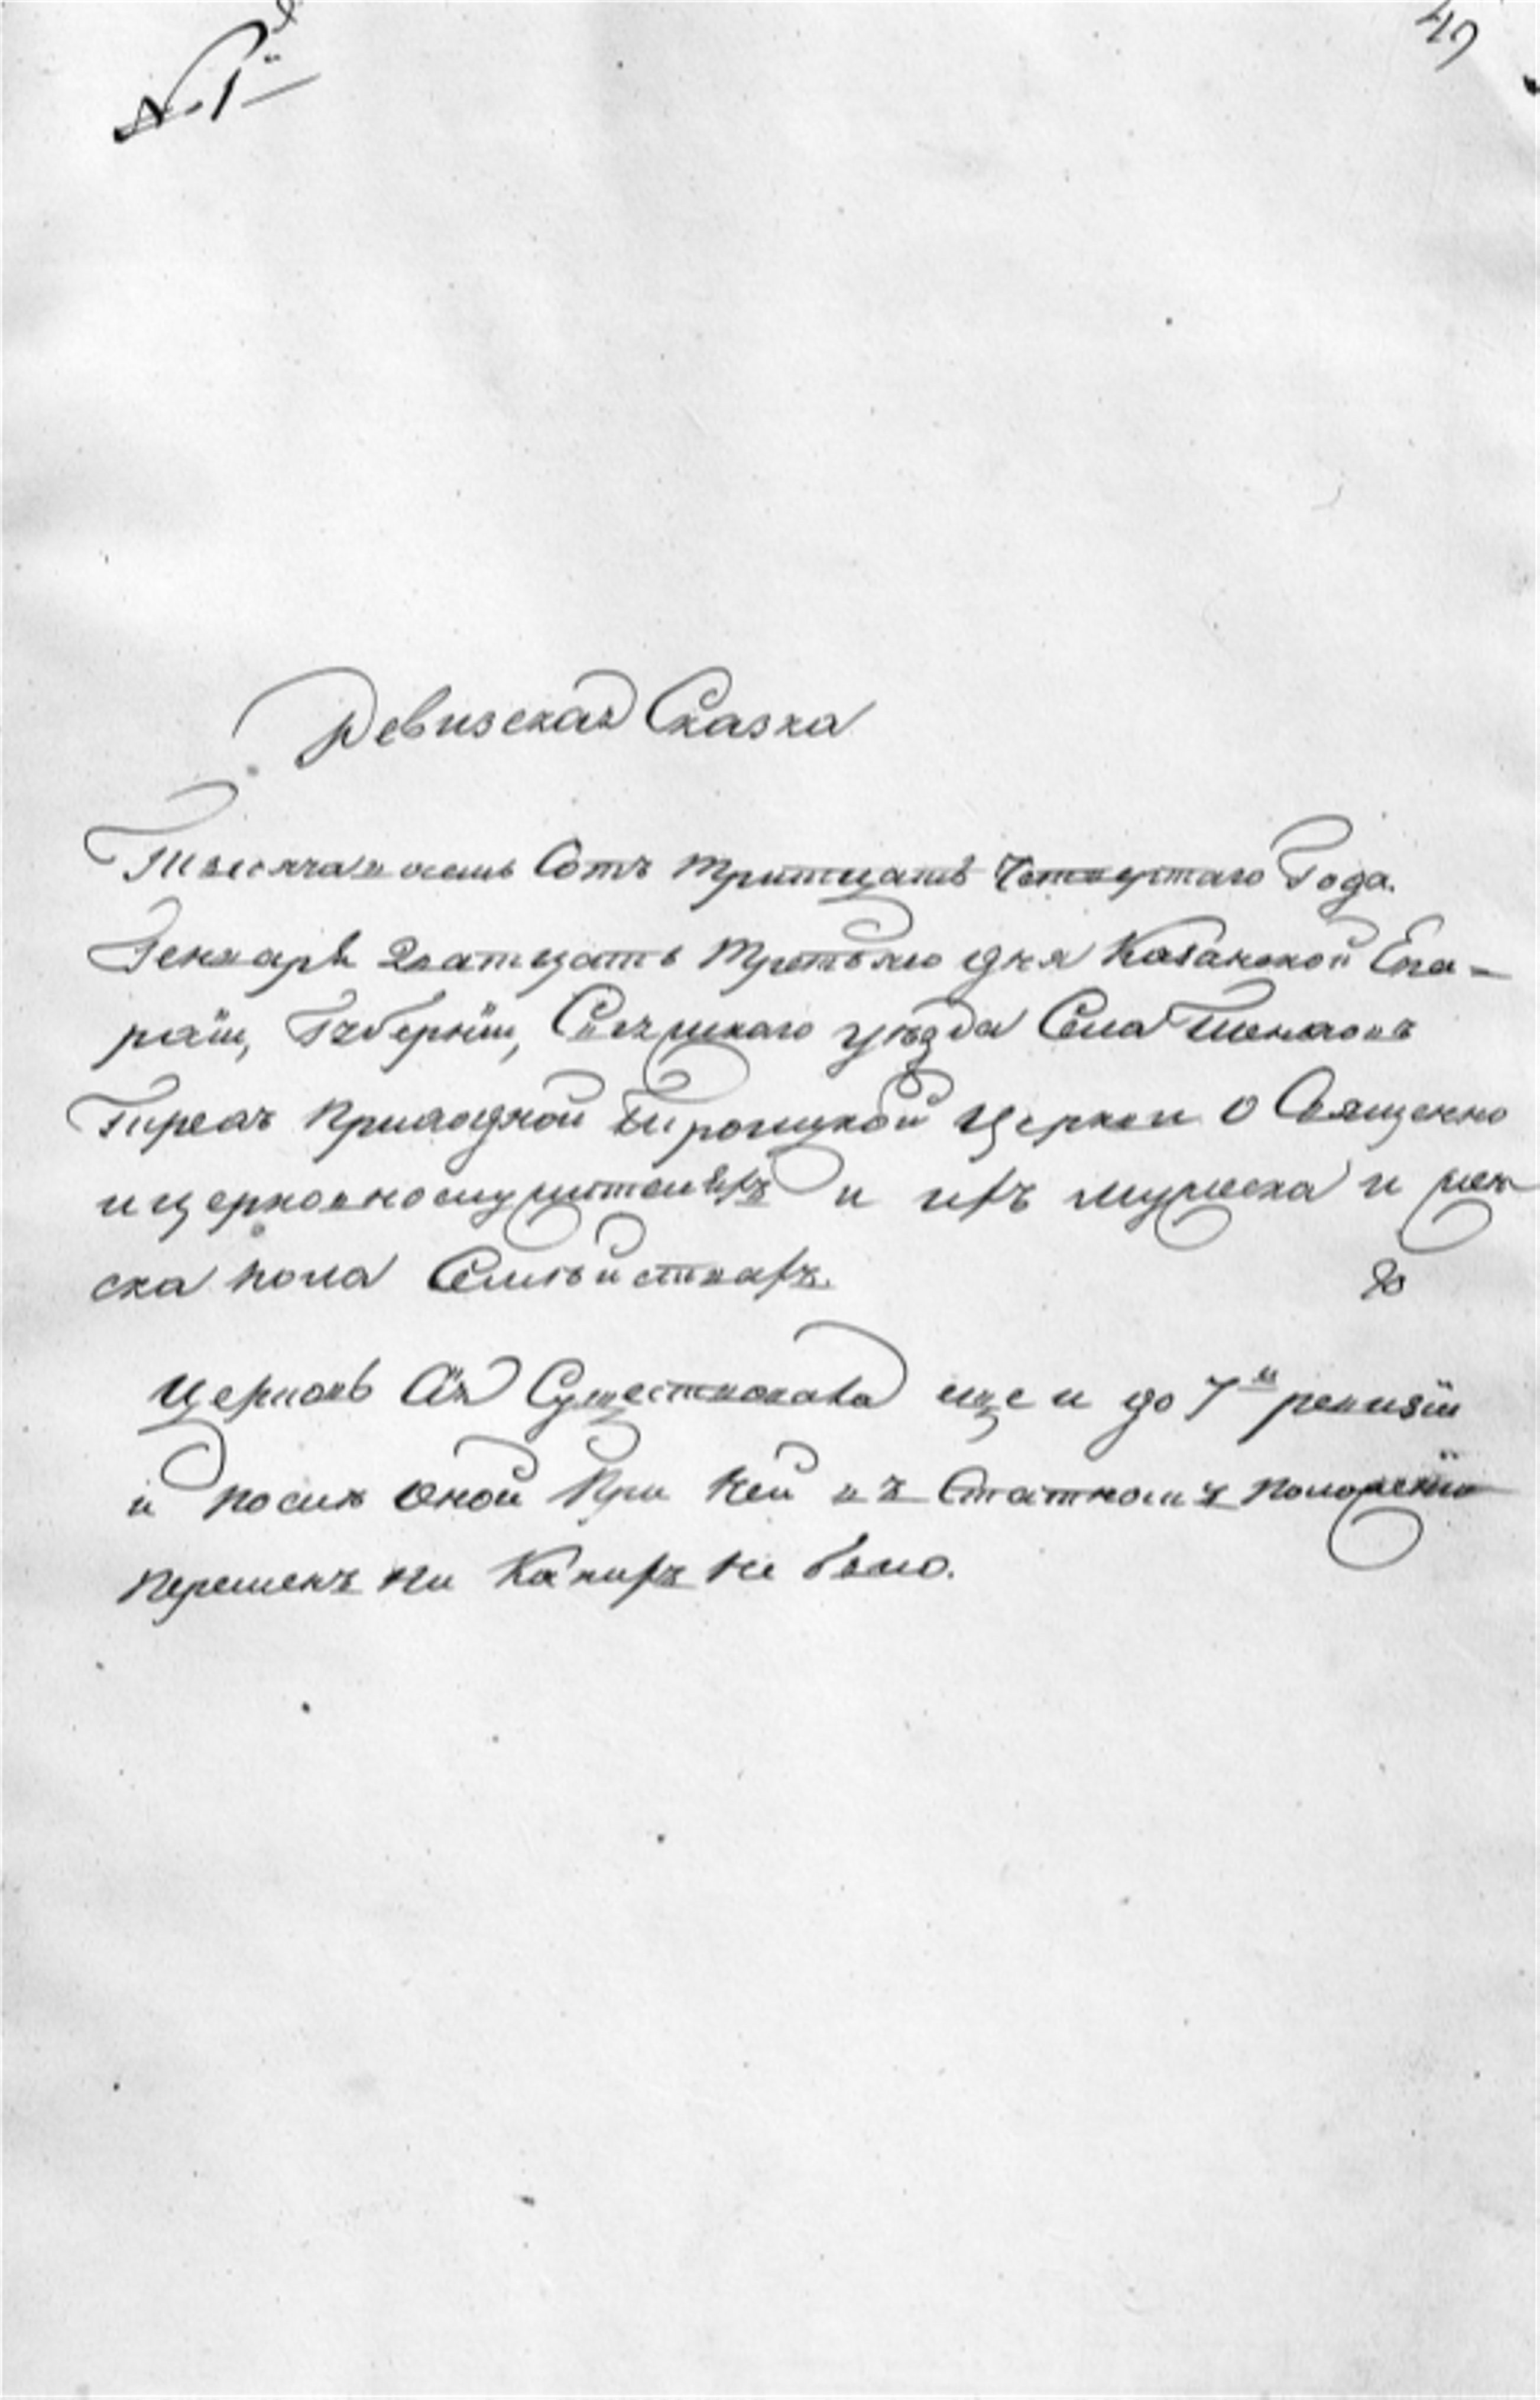 № 1й
49
Ревизская Сказка
Тысяча восемь Сотъ тритцать Четвертаго Года.
Генваря Дватцать третьяго дня Казанской Епа-
рхіи, Губерніи, Спасскаго уѣзда Села
Приходной Троицкой Церкви О Священно
и церковнослужителяхъ и ихъ мужеска и жен
ска пола Семействахъ.
Церковь Сія Существовала еще и до 7й ревизіи
и после оной При Ней въ Статномъ положеніи
Перемѣнъ Ни Какихъ Не было.